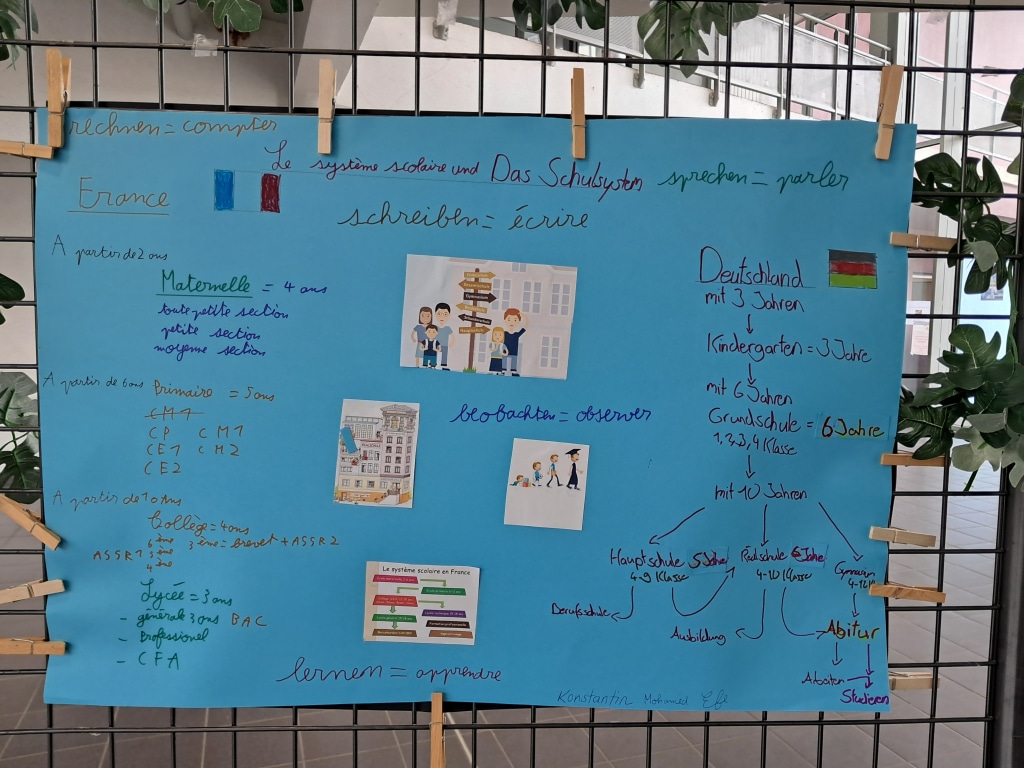 rechnen = compter
Le système scolaire und Das Schulsystem
sprechen = parler
France
schreiben = écrire
A partir de 2 ans
Maternelle = 4 ans
toute petite section
petite section
moyenne section
A partir de 6 ans Primaire = 5 ans
CM1
CP CM1
CE1 CM2
CE2
A partir de 10 ans
Collège = 4 ans
6ème
3ème = brevet + ASSR2
ASSR1 5ème
4ème
Lycée = 3 ans
- générale 3 ans BAC
- Professionel
- CFA
beobachten = observer
Le système scolaire en France
lernen = apprendre
Deutschland
mit 3 Jahren
Kindergarten = 3 Jahre
mit 6 Jahren
Grundschule = 6 Jahre
1, 2, 3, 4 Klasse
mit 10 Jahren
Hauptschule 5 Jahre
4-9 Klasse
Realschule 6 Jahre
4-10 Klasse
Gymnasium
Berufsschule
Ausbildung
Abitur
Arbeiten
Studieren
Konstantin Mohamed Efe